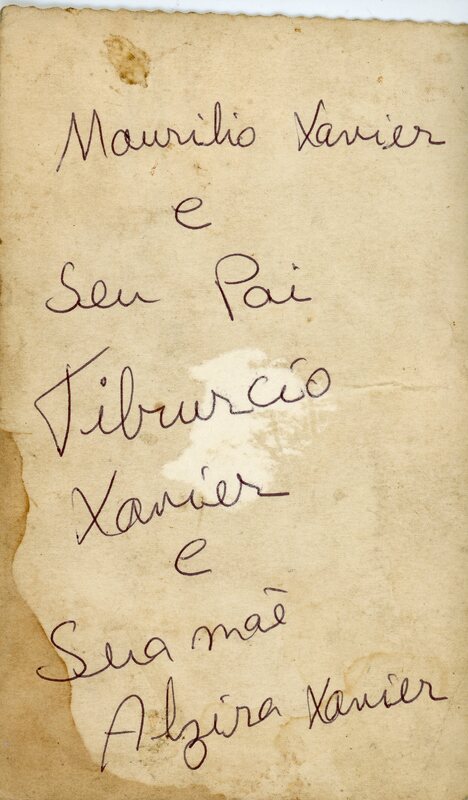 Maurilio Xavier
e
Seu Pai
Tiburcio
Xavier
e
Sua mãe
Alzira Xavier